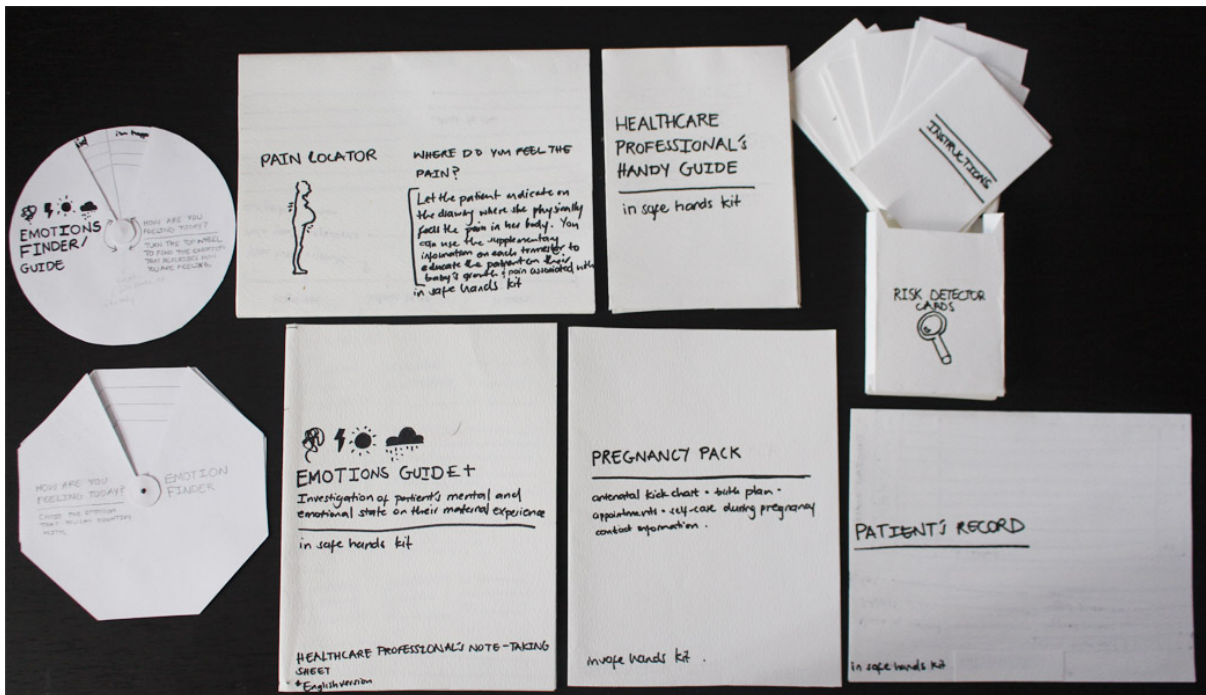 sad
i'm happy
EMOTIONS
FINDER/
GUIDE
HOW ARE YOU
FEELING TODAY?
TURN THE TOP WHEEL
TO FIND THE EMOTION
THAT DESCRIBES HOW
YOU ARE FEELING.
PAIN LOCATOR
WHERE DO YOU FEEL THE
PAIN?
Let the patient indicate on
the drawing where she physically
feels the pain in her body. You
can use the supplementary
information on each trimester to
educate the patient on their
baby's growth & pain associated with
in safe hands kit
HEALTHCARE
PROFESSIONAL'S
HANDY GUIDE
in safe hands kit
INSTRUCTIONS
RISK DETECTOR
CARDS
HOW ARE YOU
FEELING TODAY?
THE EMOTION
THAT
EMOTION
FINDER
EMOTIONS GUIDE+
Investigation of patient's mental and
emotional state on their maternal experience
in safe hands kit
HEALTHCARE PROFESSIONAL'S NOTE-TAKING
SHEET
*English version
PREGNANCY PACK
antenatal kick chart • birth plan •
appointments • self-care during pregnancy
contact information .
in safe hands kit .
PATIENT'S RECORD
in safe hands kit